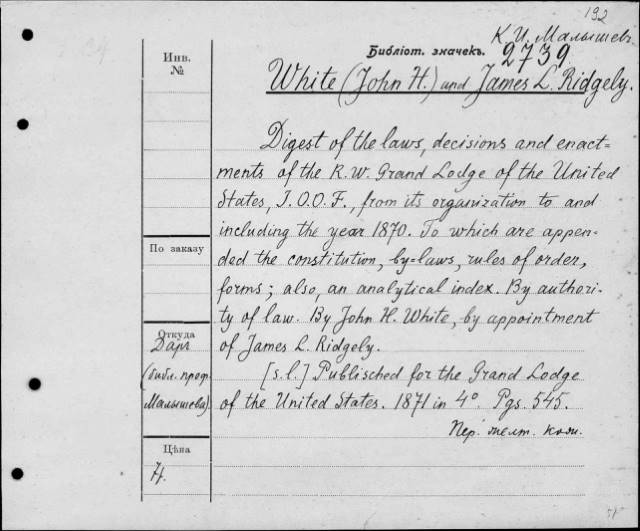 192
К. И. Малышев
Библіот. значекъ.
2739
Инв.
№
White (John H.) and James L. Ridgely.
Digest of the laws, decisions and enact=
ments of the R. W. Grand Lodge of the United
States, I. O. O. F., from its organization to and
including the year 1870. To which are appen-
ded the constitution, by=laws, rules of order,
forms; also, an analytical index. By authori-
ty of law. By John H. White, by appointment
of James L. Ridgely.
[s. l.] Publisched for the Grand Lodge
of the United States. 1871 in 4°. Pgs. 545.
Пер. желт. кож.
По заказу
Откуда
Даръ
(библ. проф.
Малышева)
Цѣна